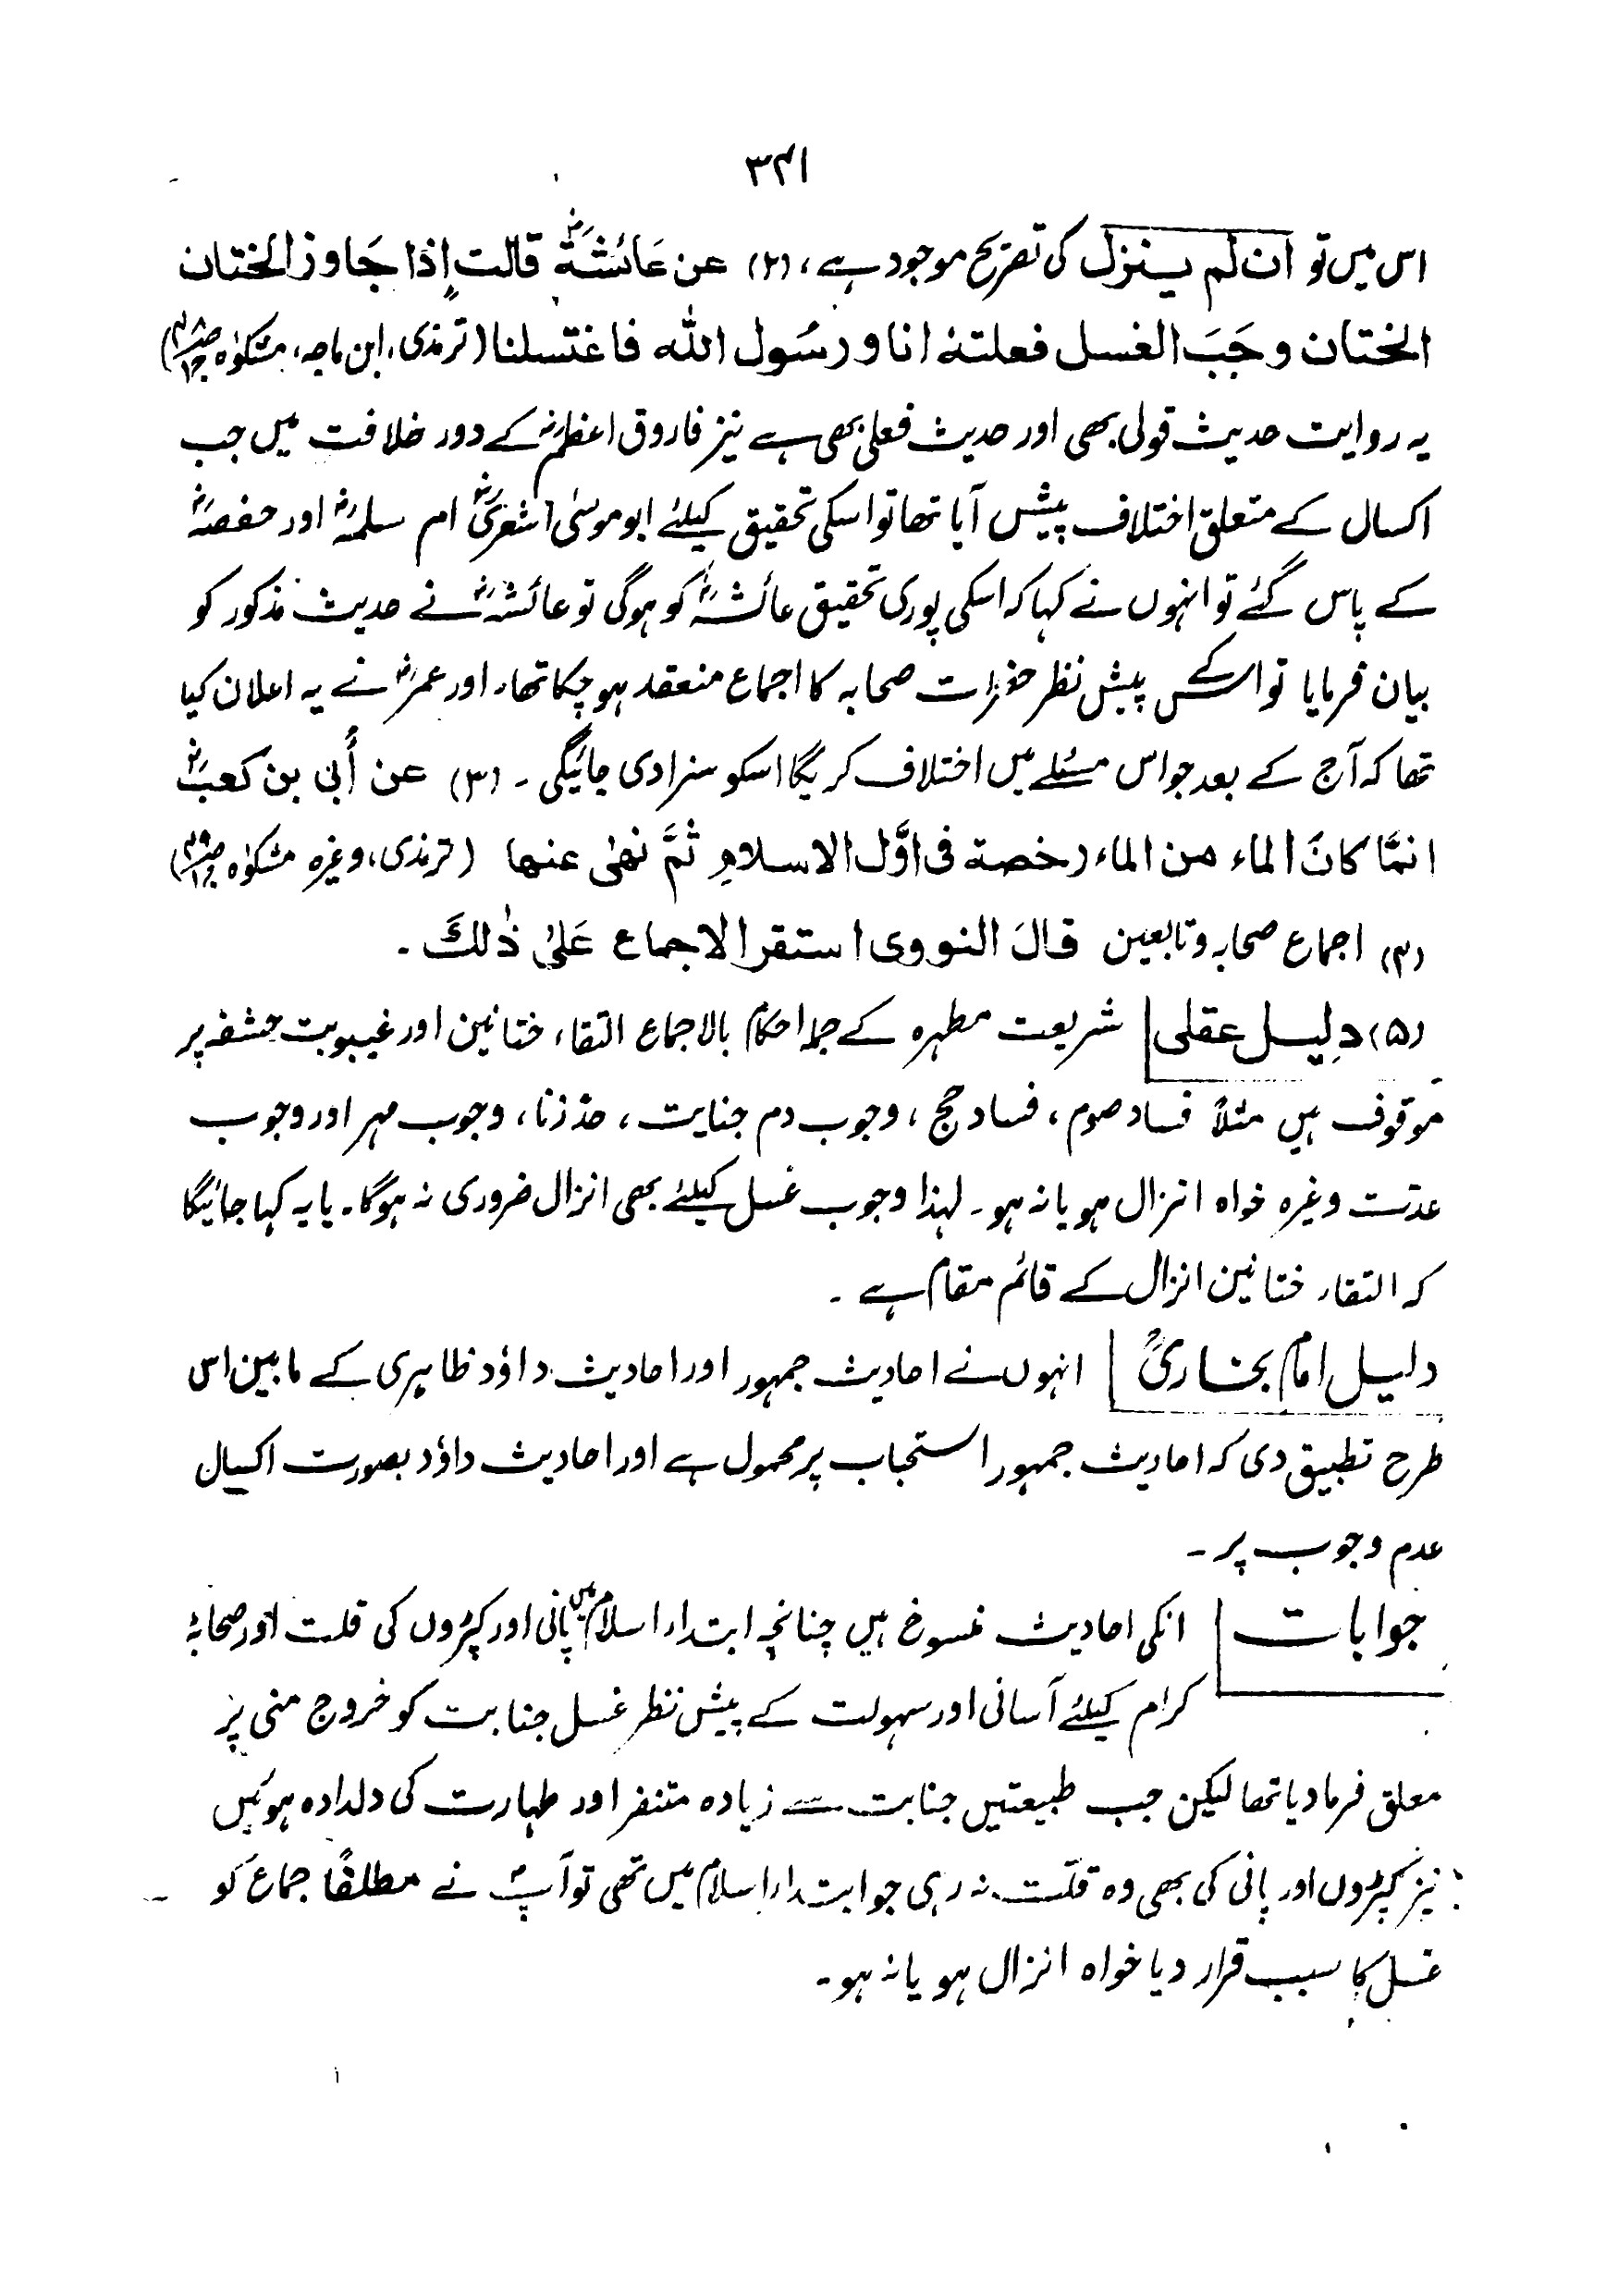 ۳۴۱
اس میں تو ان لم ینزل کی تصریح موجود ہے، (۲) عن عَائشَةؓ قالت إذا جَاوز الختان
الختان وجَبَ الغسل فعلتهٗ انا ورسُول اللّٰه فاغتسلنا (ترمذی، ابن ماجہ، مشکوٰۃ ص۴۸ ج۱)
یہ روایت حدیث قولی بھی اور حدیث فعلی بھی ہے نیز فاروق اعظمؓ کے دور خلافت میں جب
اکسال کے متعلق اختلاف پیش آیا تھا تو اسکی تحقیق کیلئے ابو موسیٰ اشعریؓ ام سلمہؓ اور حفصہؓ
کے پاس گئے تو انہوں نے کہا کہ اسکی پوری تحقیق عائشہؓ کو ہوگی تو عائشہؓ نے حدیث مذکور کو
بیان فرمایا تو اسکے پیش نظر حضرات صحابہ کا اجماع منعقد ہو چکا تھا، اور عمرؓ نے یہ اعلان کیا
تھا کہ آج کے بعد جو اس مسئلے میں اختلاف کریگا اسکو سزا دی جائیگی ۔ (۳) عن أُبی بن کعبؓ
انمَّا کانَ الماء من الماء رخصة فی اوَّل الاسلامِ ثُمَّ نھٰی عنھا (ترمذی، وغیرہ مشکوٰۃ ص۴۸ ج۱)
(۴) اجماع صحابہ و تابعین قالَ النووی استقر الاجماع عَلیٰ ذٰلكَ ۔
(۵) دلیل عقلی شریعت مطہرہ کے جملہ احکام بالاجماع التقاء ختانین اور غیبوبت حشفہ پر
موقوف ہیں مثلاً فساد صوم، فساد حج، وجوب دم جنایت، حدّ زنا، وجوب مہر اور وجوب
عدّت وغیرہ خواہ انزال ہو یا نہ ہو۔ لہٰذا وجوب غسل کیلئے بھی انزال ضروری نہ ہوگا۔ یا یہ کہا جائیگا
کہ التقاء ختانین انزال کے قائم مقام ہے ۔
دلیل امام بخاریؒ انہوں نے احادیث جمہور اور احادیث داؤد ظاہری کے مابین اس
طرح تطبیق دی کہ احادیث جمہور استحباب پر محمول ہے اور احادیث داؤد بصورت اکسال
عدم وجوب پر ۔
جوابات انکی احادیث منسوخ ہیں چنانچہ ابتداء اسلام میں پانی اور کپڑوں کی قلت اور صحابۂ
کرام کیلئے آسانی اور سہولت کے پیش نظر غسل جنابت کو خروج منی پر
معلق فرما دیا تھا لیکن جب طبیعتیں جنابت سے زیادہ متنفر اور طہارت کی دلدادہ ہوئیں
نیز کپڑوں اور پانی کی بھی وہ قلّت نہ رہی جو ابتداء اسلام میں تھی تو آپؐ نے مطلقًا جماع کو
غسل کا سبب قرار دیا خواہ انزال ہو یا نہ ہو۔